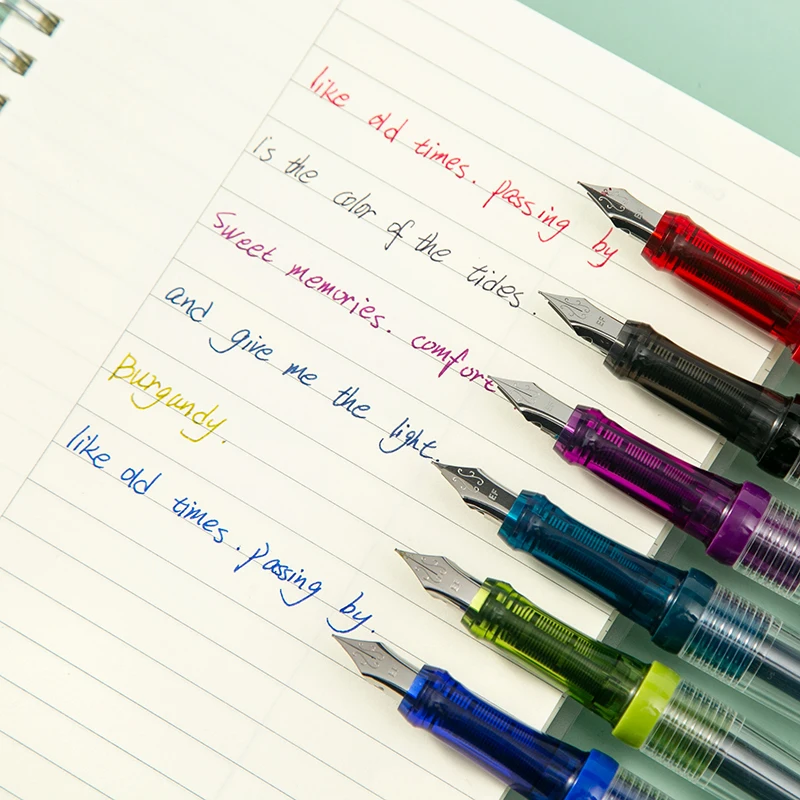 like old times. passing by
is the color of the tides.
Sweet memories. comfort
and give me the light.
Burgundy.
like old times. passing by.
EF